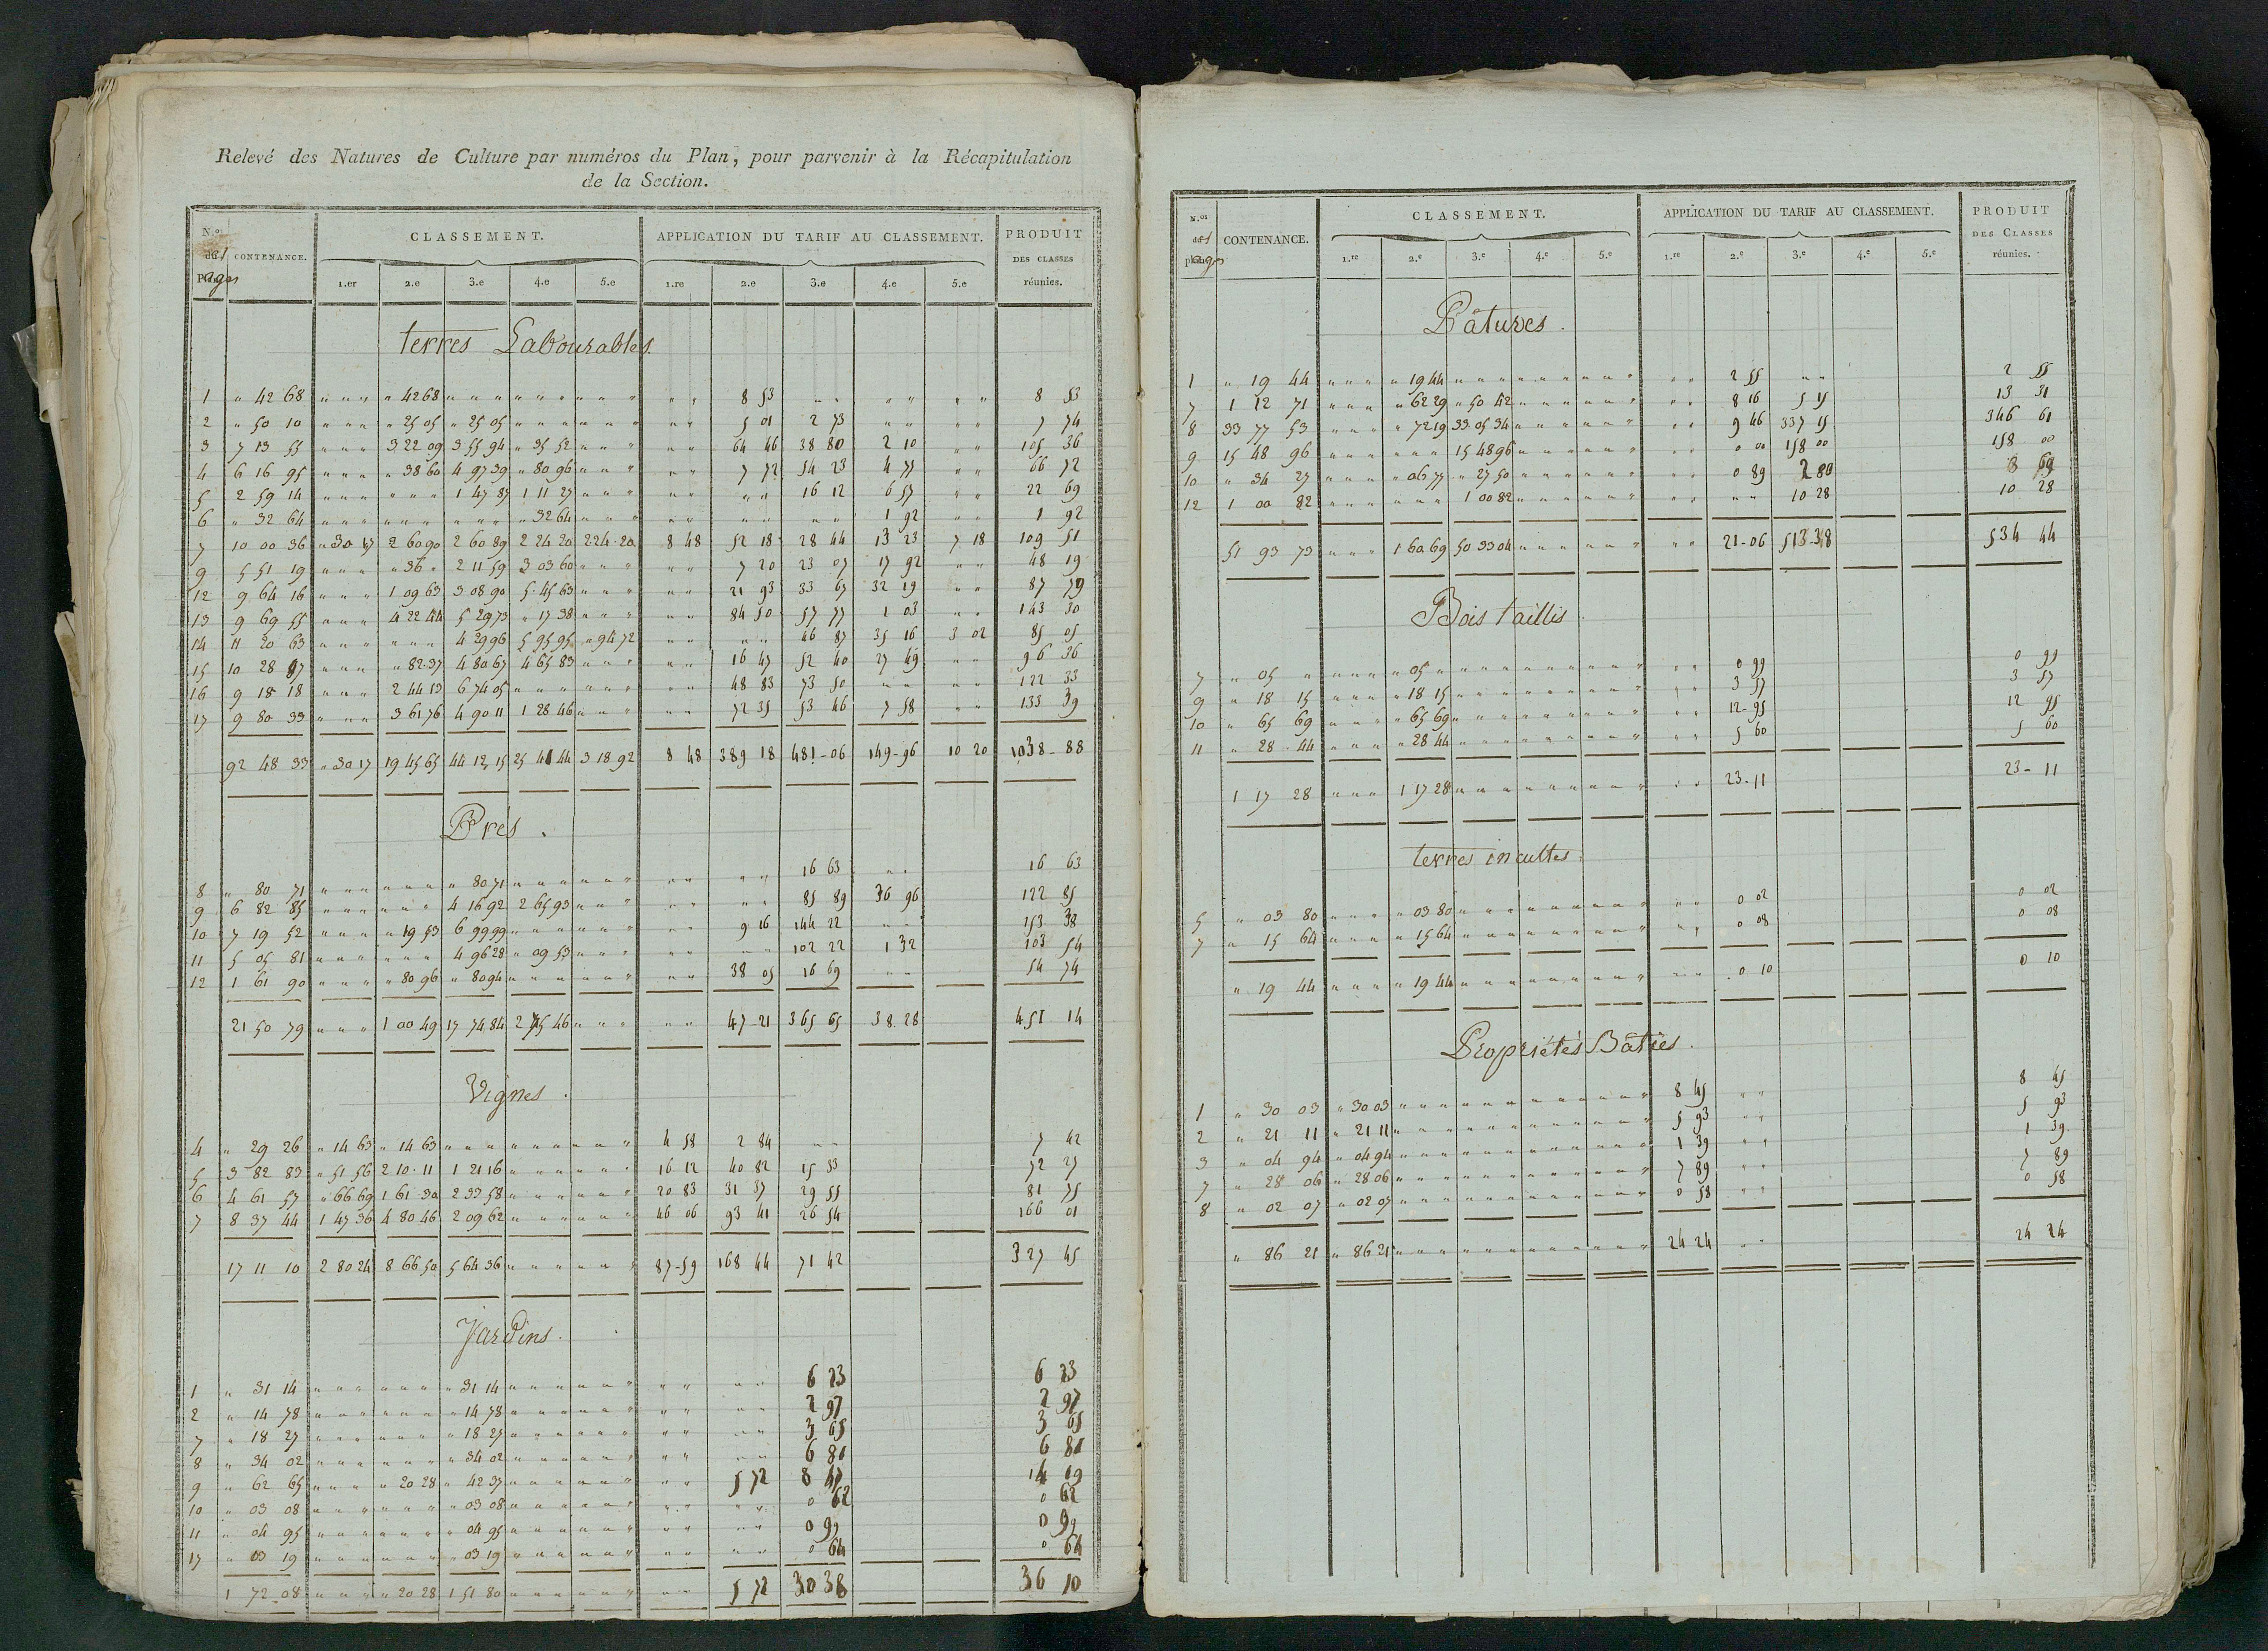 Relevé des Natures de Culture par numéros du Plan, pour parvenir à la Récapitulation
de la Section.
N.os des pages CONTENANCE. CLASSEMENT. APPLICATION DU TARIF AU CLASSEMENT. PRODUIT DES CLASSES réunies.
1.er 2.e 3.e 4.e 5.e 1.re 2.e 3.e 4.e 5.e
terres Labourables.
1 " 42 68 " " " " 42 68 " " " " " " " " " " " 8 53 " " " " " " 8 53
2 " 50 10 " " " " 25 05 " 25 05 " " " " " " " " 5 01 2 73 " " " " 7 74
3 7 13 55 " " " 3 22 09 3 55 94 " 35 52 " " " " " 64 46 38 80 2 10 " " 105 36
4 6 16 95 " " " " 38 60 4 97 39 " 80 96 " " " " " 7 72 54 23 4 77 " " 66 72
5 2 59 14 " " " " " " 1 47 87 1 11 27 " " " " " " " 16 12 6 57 " " 22 69
6 " 32 64 " " " " " " " " " " 32 64 " " " " " " " " " 1 92 " " 1 92
7 10 00 36 " 30 17 2 60 90 2 60 89 2 24 20 2 24 20 8 48 52 18 28 44 13 23 7 18 109 51
9 5 51 19 " " " " 36 " 2 11 59 3 03 60 " " " " " 7 20 23 07 17 92 " " 48 19
12 9 64 16 " " " 1 09 63 3 08 90 5 45 63 " " " " " 21 93 33 67 32 19 " " 87 79
13 9 69 55 " " " 4 22 44 5 29 73 " 17 38 " " " " " 84 50 57 77 1 03 " " 143 30
14 11 20 63 " " " " " " 4 29 96 5 95 95 " 94 72 " " " " 46 87 35 16 3 02 85 05
15 10 28 87 " " " " 82 37 4 80 67 4 65 83 " " " " " 16 47 52 40 27 49 " " 96 36
16 9 18 18 " " " 2 44 13 6 74 05 " " " " " " " " 48 83 73 50 " " " " 122 33
17 9 80 33 " " " 3 61 76 4 90 11 1 28 46 " " " " " 72 35 53 46 7 58 " " 133 39
92 48 33 " 30 17 19 45 65 44 12 15 25 41 44 3 18 92 8 48 389 18 481-06 149-96 10 20 1038-88
Prés.
8 " 80 71 " " " " " " " 80 71 " " " " " " " " " " 16 63 " " 16 63
9 6 82 85 " " " " " " 4 16 92 2 65 93 " " " " " " " 85 89 36 96 122 85
10 7 19 52 " " " " 19 53 6 99 99 " " " " " " " " 9 16 144 22 " " 153 38
11 5 05 81 " " " " " " 4 96 28 " 09 53 " " " " " " " 102 22 1 32 103 54
12 1 61 90 " " " " 80 96 " 80 94 " " " " " " " " 38 05 16 69 " " 54 74
21 50 79 " " " 1 00 49 17 74 84 2 75 46 " " " " " 47-21 365 65 38-28 451 14
Vignes.
4 " 29 26 " 14 63 " 14 63 " " " " " " " " " 4 58 2 84 " " 7 42
5 3 82 83 " 51 56 2 10 11 1 21 16 " " " " " " 16 12 40 82 15 33 72 27
6 4 61 57 " 66 69 1 61 30 2 33 58 " " " " " " 20 83 31 37 29 55 81 75
7 8 37 44 1 47 36 4 80 46 2 09 62 " " " " " " 46 06 93 41 26 54 166 01
17 11 10 2 80 24 8 66 50 5 64 36 " " " " " " 87-59 168 44 71 42 327 45
Jardins.
1 " 31 14 " " " " " " " 31 14 " " " " " " " " " " 6 23 6 23
2 " 14 78 " " " " " " " 14 78 " " " " " " " " " " 2 97 2 97
7 " 18 27 " " " " " " " 18 27 " " " " " " " " " " 3 65 3 65
8 " 34 02 " " " " " " " 34 02 " " " " " " " " " " 6 81 6 81
9 " 62 65 " " " " 20 28 " 42 37 " " " " " " " " 5 72 8 47 14 19
10 " 03 08 " " " " " " " 03 08 " " " " " " " " " " 0 62 0 62
11 " 04 95 " " " " " " " 04 95 " " " " " " " " " " 0 99 0 99
17 " 03 19 " " " " " " " 03 19 " " " " " " " " " " 0 64 0 64
1 72 08 " " " " 20 28 1 51 80 " " " " " " " " 5 72 30 38 36 10
N.os des pages CONTENANCE. CLASSEMENT. APPLICATION DU TARIF AU CLASSEMENT. PRODUIT DES CLASSES réunies.
1.re 2.e 3.e 4.e 5.e 1.re 2.e 3.e 4.e 5.e
Pâtures.
1 " 19 44 " " " " 19 44 " " " " " " " " " " " 2 55 " " 2 55
7 1 12 71 " " " " 62 29 " 50 42 " " " " " " " " 8 16 5 15 13 31
8 33 77 53 " " " " 72 19 33 05 34 " " " " " " " " 9 46 337 15 346 61
9 15 48 96 " " " " " " 15 48 96 " " " " " " " " 0 00 158 00 158 00
10 " 34 27 " " " " 06 77 " 27 50 " " " " " " " " 0 89 2 80 3 69
12 1 00 82 " " " " " " 1 00 82 " " " " " " " " " " 10 28 10 28
51 93 73 " " " 1 60 69 50 33 04 " " " " " " " " 21-06 513-38 534 44
Bois taillis.
7 " 05 " " " " " 05 " " " " " " " " " " " " 0 99 0 99
9 " 18 15 " " " " 18 15 " " " " " " " " " " " 3 57 3 57
10 " 65 69 " " " " 65 69 " " " " " " " " " " " 12-95 12 95
11 " 28 44 " " " " 28 44 " " " " " " " " " " " 5 60 5 60
1 17 28 " " " 1 17 28 " " " " " " " " " " " 23-11 23-11
terres incultes.
5 " 03 80 " " " " 03 80 " " " " " " " " " " " 0 02 0 02
7 " 15 64 " " " " 15 64 " " " " " " " " " " " 0 08 0 08
" 19 44 " " " " 19 44 " " " " " " " " " " " 0 10 0 10
Propriétés Bâties.
1 " 30 03 " 30 03 " " " " " " " " " " " " 8 45 " " 8 45
2 " 21 11 " 21 11 " " " " " " " " " " " " 5 93 " " 5 93
3 " 04 94 " 04 94 " " " " " " " " " " " " 1 39 " " 1 39
7 " 28 06 " 28 06 " " " " " " " " " " " " 7 89 " " 7 89
8 " 02 07 " 02 07 " " " " " " " " " " " " 0 58 " " 0 58
" 86 21 " 86 21 " " " " " " " " " " " " 24 24 " " 24 24